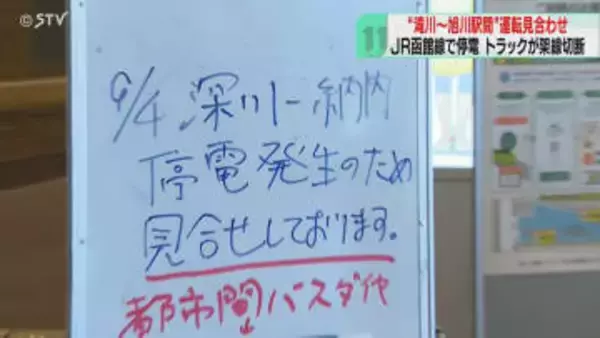 ©STV
"滝川～旭川駅間"運転見合わせ
JR函館線で停電 トラックが架線切断
11
9/4 深川ー納内
停電発生のため
見合せしております。
都市間バスダイヤ